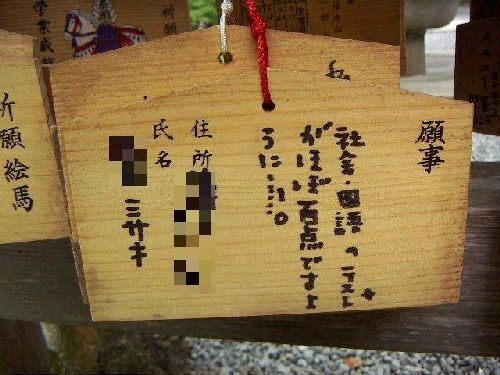 願事
社会・国語のテスト
がほぼ百点ですよ
うに!!。
住所
氏名
ミサキ
祈願絵馬
学業成就
祈願